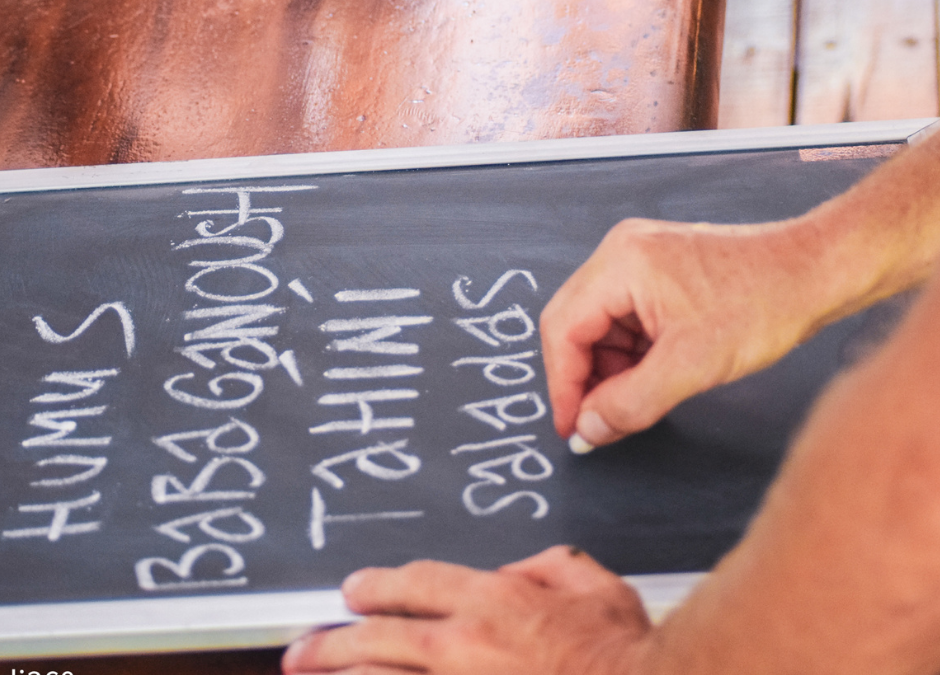 HUMUS
BaBaGaNOUSH
TaHINI
Saladas